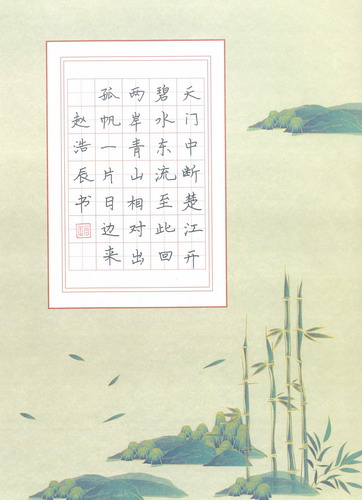 天门中断楚江开
碧水东流至此回
两岸青山相对出
孤帆一片日边来
赵浩辰书